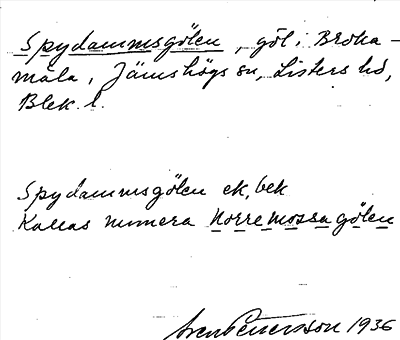 Spydammsgölen, göl i Broka-
måla, Jämshögs sn, Listers hd,
Blek. l.
Spydammsgölen ek, bek
Kallas numera Norremossagölen
Sven Petersson 1936